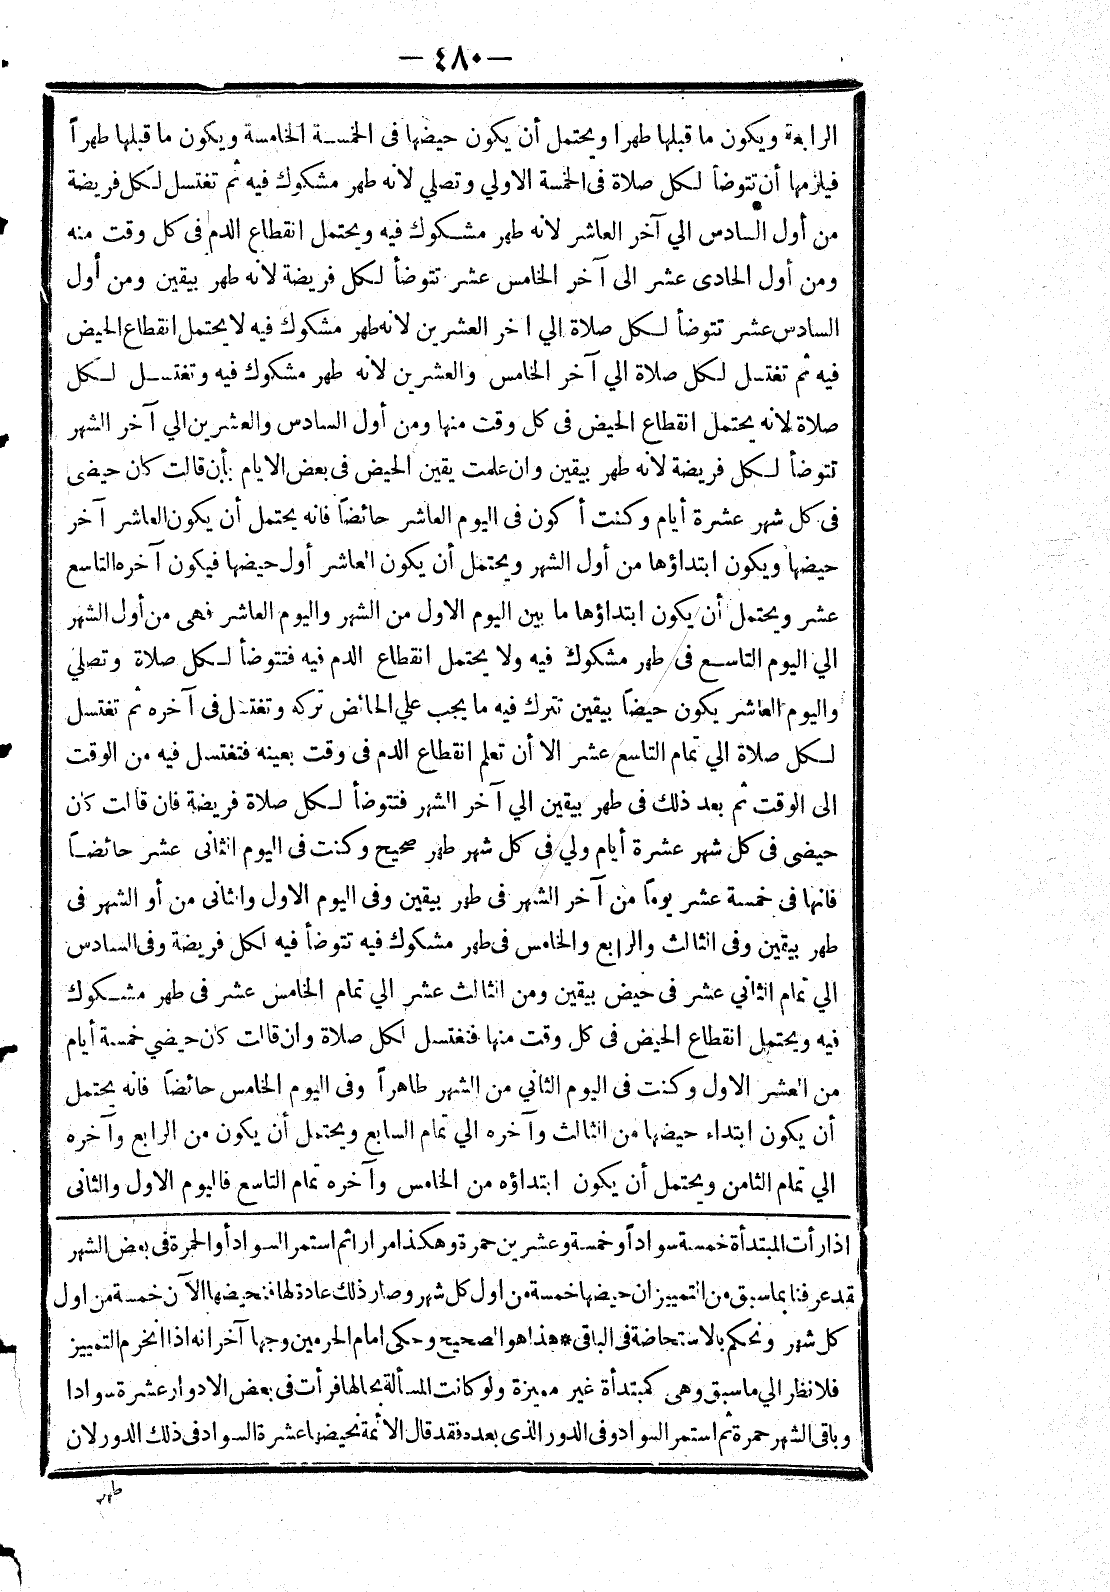 — ٤٨٠ —
الرابعة ويكون ما قبلها طهرا ويحتمل أن يكون حيضها فى الخمسة الخامسة ويكون ما قبلها طهراً
فيلزمها أن تتوضأ لكل صلاة فى الخمسة الاولي وتصلي لانه طهر مشكوك فيه ثم تغتسل لكل فريضة
من أول السادس الي آخر العاشر لانه طهر مشكوك فيه ويحتمل انقطاع الدم فى كل وقت منه
ومن أول الحادى عشر الى آخر الخامس عشر تتوضأ لكل فريضة لانه طهر بيقين ومن أول
السادس عشر تتوضأ لكل صلاة الي اخر العشرين لانه طهر مشكوك فيه لا يحتمل انقطاع الحيض
فيه ثم تغتسل لكل صلاة الي آخر الخامس والعشرين لانه طهر مشكوك فيه وتغتسل لكل
صلاة لانه يحتمل انقطاع الحيض فى كل وقت منها ومن أول السادس والعشرين الي آخر الشهر
تتوضأ لكل فريضة لانه طهر بيقين وان علمت يقين الحيض فى بعض الايام بأن قالت كان حيضى
فى كل شهر عشرة أيام وكنت أكون فى اليوم العاشر حائضاً فانه يحتمل أن يكون العاشر آخر
حيضها ويكون ابتداؤها من أول الشهر ويحتمل أن يكون العاشر أول حيضها فيكون آخره التاسع
عشر ويحتمل أن يكون ابتداؤها ما بين اليوم الاول من الشهر واليوم العاشر فهى من أول الشهر
الي اليوم التاسع فى طهر مشكوك فيه ولا يحتمل انقطاع الدم فيه فتتوضأ لكل صلاة وتصلي
واليوم العاشر يكون حيضاً بيقين تترك فيه ما يجب علي الحائض تركه وتغتسل فى آخره ثم تغتسل
لكل صلاة الي تمام التاسع عشر الا أن تعلم انقطاع الدم فى وقت بعينه فتغتسل فيه من الوقت
الى الوقت ثم بعد ذلك فى طهر بيقين الي آخر الشهر فتتوضأ لكل صلاة فريضة فان قالت كان
حيضى فى كل شهر عشرة أيام ولي فى كل شهر طهر صحيح وكنت فى اليوم الثانى عشر حائضاً
فانها فى خمسة عشر يوماً من آخر الشهر فى طهر بيقين وفى اليوم الاول والثانى من أو الشهر فى
طهر بيقين وفى الثالث والرابع والخامس فى طهر مشكوك فيه تتوضأ فيه لكل فريضة وفى السادس
الي تمام الثاني عشر فى حيض بيقين ومن الثالث عشر الي تمام الخامس عشر فى طهر مشكوك
فيه ويحتمل انقطاع الحيض فى كل وقت منها فتغتسل لكل صلاة وان قالت كان حيضي خمسة أيام
من العشر الاول وكنت فى اليوم الثاني من الشهر طاهراً وفى اليوم الخامس حائضاً فانه يحتمل
أن يكون ابتداء حيضها من الثالث وآخره الي تمام السابع ويحتمل أن يكون من الرابع وآخره
الي تمام الثامن ويحتمل أن يكون ابتداؤه من الخامس وآخره تمام التاسع فاليوم الاول والثانى
اذا رأت المبتدأة خمسة سواداً وخمسة وعشرين حمرة وهكذا مرارا ثم استمر السواد أو الحمرة فى بعض الشهر
قد عرفنا بما سبق من التمييز ان حيضها خمسة من اول كل شهر وصار ذلك عادة لها فتحيضها الآن خمسة من اول
كل شهر ونحكم بالاستحاضة فى الباقى * هذا هو الصحيح وحكى امام الحرمين وجها آخر انه اذا انخرم التمييز
فلا نظر الي ما سبق وهى كمبتدأة غير مميزة ولو كانت المسألة بحالها فرأت فى بعض الادوار عشرة سوادا
وباقى الشهر حمرة ثم استمر السواد وفى الدور الذى بعده فقد قال الأئمة نحيضها عشرة السواد فى ذلك الدور لان
طهر